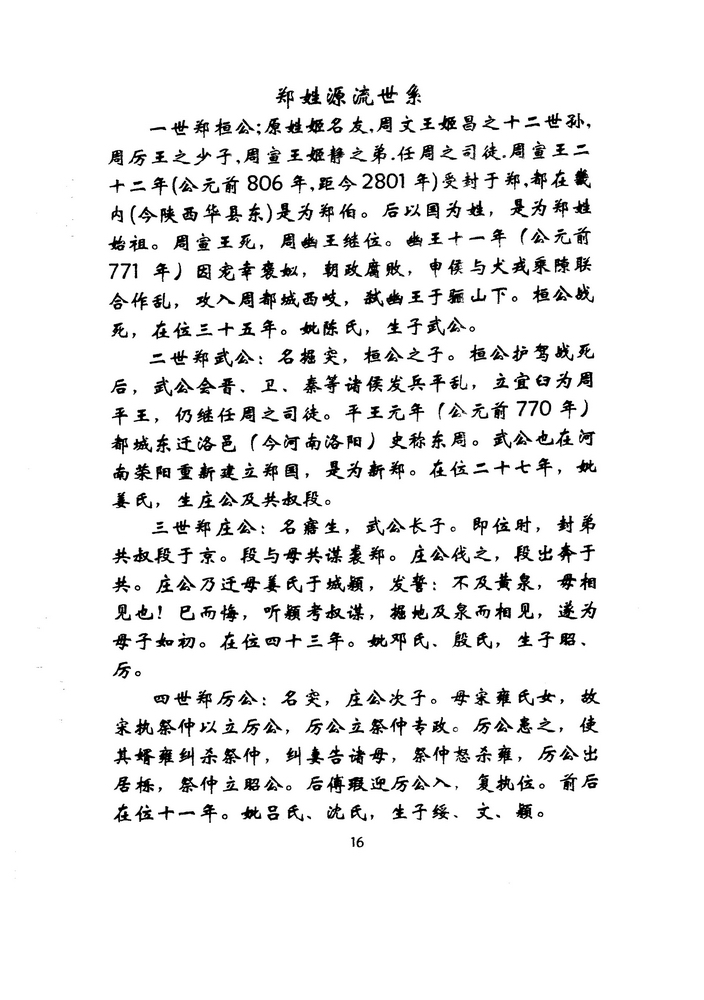 郑姓源流世系
一世郑桓公;原姓姬名友,周文王姬昌之十二世孙,
周厉王之少子,周宣王姬静之弟.任周之司徒.周宣王二
十二年(公元前806年,距今2801年)受封于郑,都在畿
内(今陕西华县东)是为郑伯。后以国为姓，是为郑姓
始祖。周宣王死，周幽王继位。幽王十一年（公元前
771 年）因宠幸褒姒，朝政腐败，申侯与犬戎乘隙联
合作乱，攻入周都城西岐，弑幽王于骊山下。桓公战
死，在位三十五年。妣陈氏，生子武公。
二世郑武公：名掘突，桓公之子。桓公护驾战死
后，武公会晋、卫、秦等诸侯发兵平乱，立宜臼为周
平王，仍继任周之司徒。平王元年（公元前770年）
都城东迁洛邑（今河南洛阳）史称东周。武公也在河
南荥阳重新建立郑国，是为新郑。在位二十七年，妣
姜氏，生庄公及共叔段。
三世郑庄公：名寤生，武公长子。即位时，封弟
共叔段于京。段与母共谋袭郑。庄公伐之，段出奔于
共。庄公乃迁母姜氏于城颖，发誓：不及黄泉，毋相
见也！已而悔，听颖考叔谋，掘地及泉而相见，遂为
母子如初。在位四十三年。妣邓氏、殷氏，生子昭、
厉。
四世郑厉公：名突，庄公次子。母宋雍氏女，故
宋执祭仲以立厉公，厉公立祭仲专政。厉公患之，使
其婿雍纠杀祭仲，纠妻告诸母，祭仲怒杀雍，厉公出
居栎，祭仲立昭公。后傅瑕迎厉公入，复执位。前后
在位十一年。妣吕氏、沈氏，生子绥、文、颖。
16